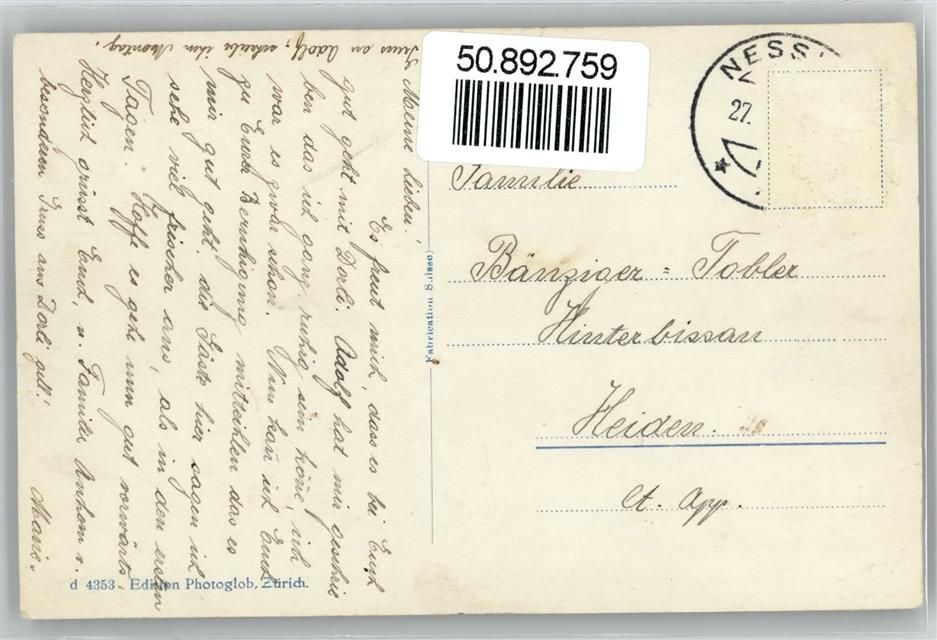 Gruss an Adolf, schreibe ihm Montag.
Meine Lieben!
Es freut mich, dass es bei Euch
gut geht mit Dorli. Adolf hat mir geschrie
ben das ich ganz ruhig sein köne, ich
war es zwar schon. Nun kan ich Euch
zu Eurer Beruhigung mitteihlen das es
mir gut geht. die Gäste hier sagen ich
sehe viel frischer aus, als in den ersten
Tagen. Hoffe es gehe nun gut vorwärts
Herzlich grüsst Euch, u. Familie
besondern Gruss ans Dorli gell!
Marie.
50.892.759
NESS
27.
Familie
Bänziger = Tobler
Hinterbissau
Heiden.
Ct. App.
Fabrication Suisse
d 4353 - Edition Photoglob, Zürich.